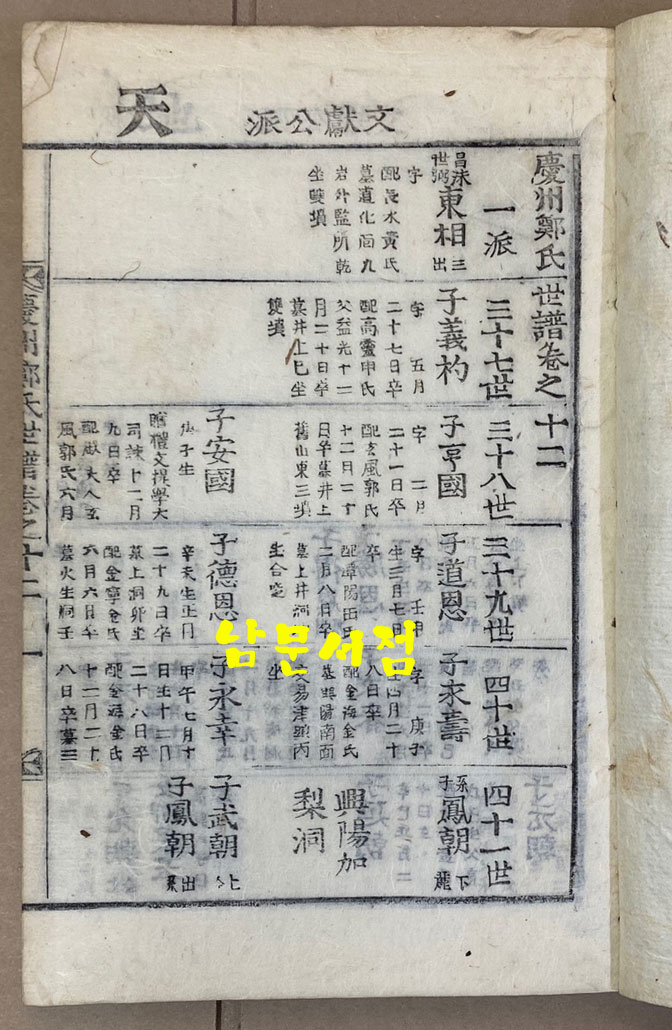 天
文獻公派
慶州鄭氏世譜卷之十二
一派
三十七世
三十八世
三十九世
四十世
四十一世
東相
三
出
字
配長水黃氏
墓道化面九
岩外監所乾
坐雙墳
子義杓
字 五月
二十七日卒
配高靈申氏
父益光十二
月二十日卒
墓井上巳坐
雙墳
子亨國
字 二月
二十一日卒
配玄風郭氏
十二月二十
日卒墓井上
舊山東三墳
子安國
庚子生
贈禮文提學大
司諫十一月
九日卒
配獻夫人玄
風郭氏六月
子道恩
字 壬申
生三月七日
卒
配潭陽田氏
二月八日卒
墓上井洞
生合窆
子德恩
辛未生正月
二十九日卒
墓上洞卯坐
配金寧金氏
六月六日卒
墓火生洞壬
子永壽
字 庚子
生四月二十
八日卒
配金海金氏
墓興陽南面
交易津頭丙
坐
子永幸
甲午七月十
日生十二月
二十八日卒
配金海金氏
十一月二十
八日卒墓三
系子
鳳朝
下龍
興陽加
梨洞
子武朝
子鳳朝
出系
慶州鄭氏世譜卷之十二
一
남문서점